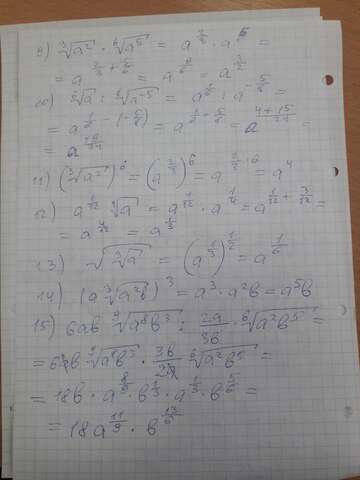 9) ∛a² · ⁶√a⁵ = a^(2/3) · a^(5/6) =
= a^(2/3 + 5/6) = a^(9/6) = a^(3/2)
10) ⁶√a : ⁸√a⁻⁵ = a^(1/6) : a^(-5/8) =
= a^(1/6 - (-5/8)) = a^(1/6 + 5/8) = a^((4+15)/24) =
= a^(19/24)
11) (∛a²)⁶ = (a^(2/3))⁶ = a^(2/3 · 6) = a⁴
12) a^(1/12) ⁴√a = a^(1/12) · a^(1/4) = a^(1/12 + 3/12) =
= a^(4/12) = a^(1/3)
13) √(∛a) = (a^(1/3))^(1/2) = a^(1/6)
14) (a ∛(a²b))³ = a³ · a²b = a⁵b
15) 6ab ⁹√(a⁸b³) : 2a/3b · ⁶√(a²b⁵) =
= 6ab ⁹√(a⁸b³) · 3b/2a ⁶√(a²b⁵) =
= 18b · a^(8/9) · b^(1/3) · a^(1/3) · b^(5/6) =
= 18a^(11/9) · b